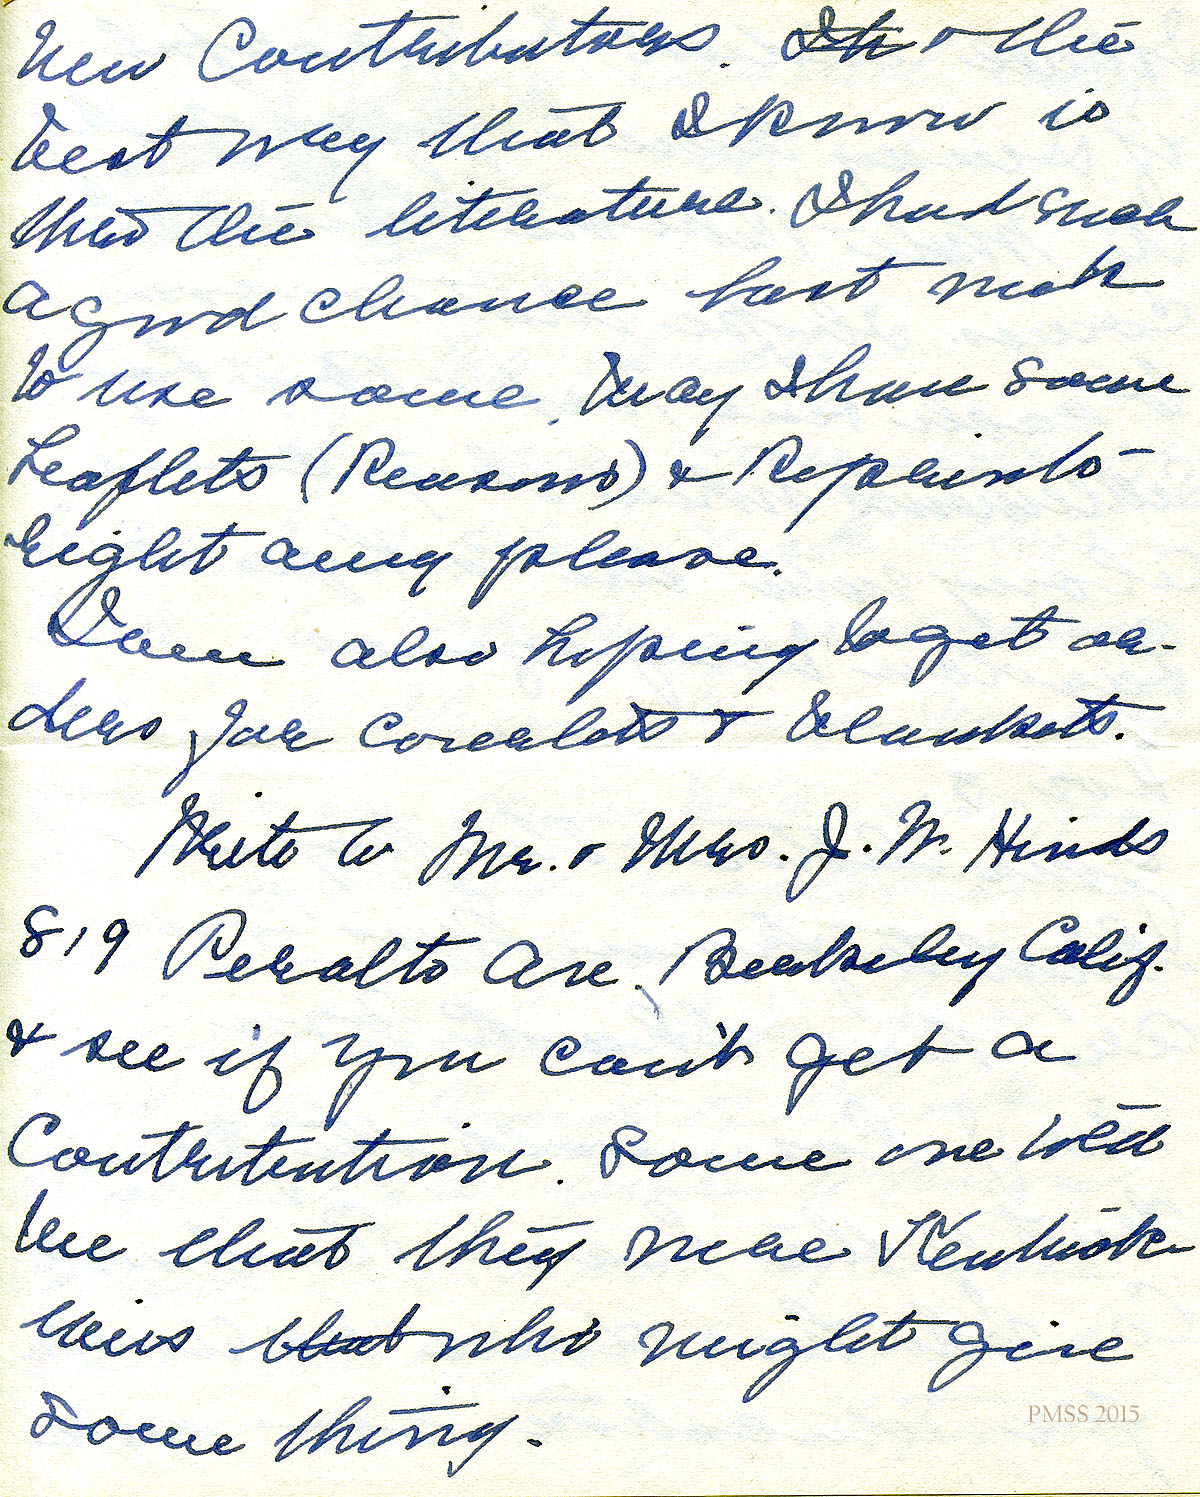 New Contributors. Ik & the
best way that I know is
thro the literature. I had such
a good chance last week
to use some. May I have some
Leaflets (Reasons) & Reprints
right away please.
I am also hoping to get or-
ders for coverlets & blankets.
Write to Mr. & Mrs. J. W. Hinds
819 Peralto Ave. Berkeley Calif.
& see if you can't get a
Contribution. Some one told
me that they were Kentuck-
ians that who might give
some thing.
PMSS 2015